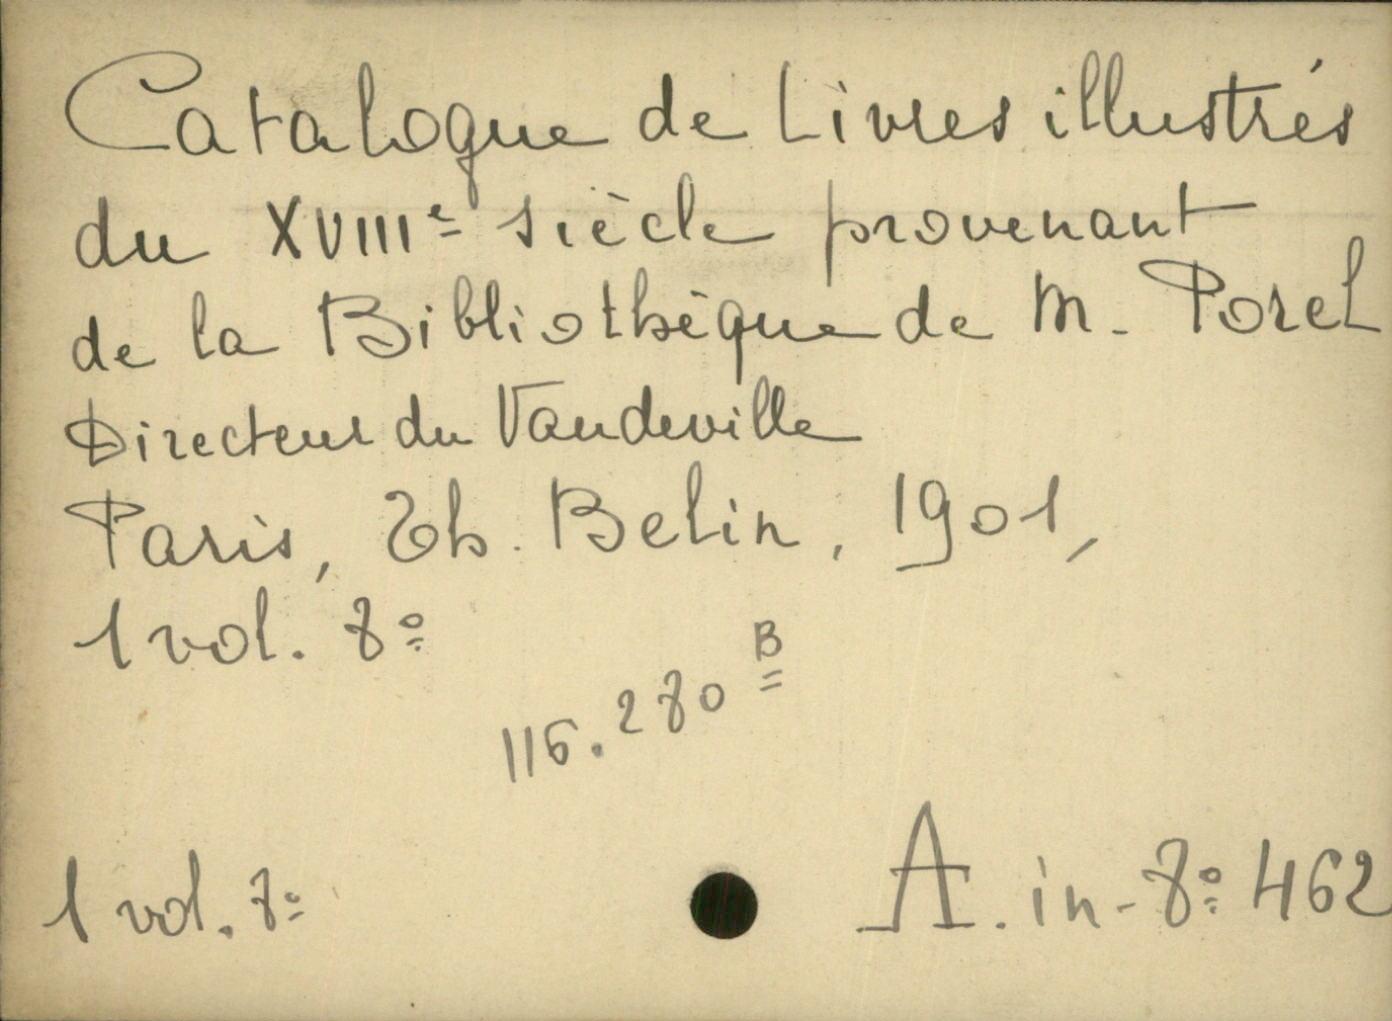 Catalogue de Livres illustrés
du XVIIIe siècle provenant
de la Bibliothèque de M. Porel
Directeur du Vaudeville
Paris, Th. Belin, 1901,
1 vol. 8º
116.280 B
1 vol. 8º
A. in-8º 462